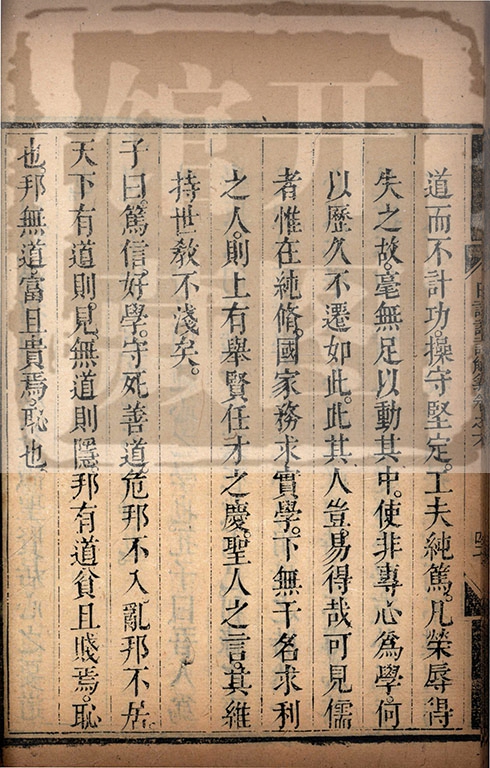 道而不計功。操守堅定。工夫純篤。凡榮辱得
失之故。毫無足以動其中。使非專心爲學。何
以歷久不遷如此。此其人豈易得哉可見儒
者惟在純脩。國家務求實學。下無干名求利
之人。則上有舉賢任才之慶。聖人之言。其維
持世敎不淺矣。
子曰。篤信好學。守死善道。危邦不入亂邦不居。
天下有道則見。無道則隱。邦有道貧且賤焉。恥
也。邦無道富且貴焉。恥也。